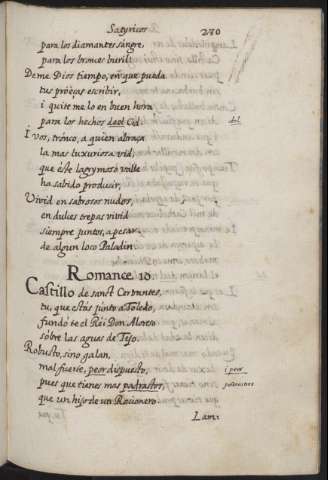 Satyricos 280
para los diamantes sangre,
para los bronces buril.
Deme Dios tiempo, en que pueda
tus proëças escribir,
i quite me lo en buen hora
para los hechos deel Cid. del
I vos, trónco, a quien abraça
la mas luxuriosa vid,
que este lagrymoso valle
ha sabido producir,
Vivid en sabrosos nudos,
en dulces trepas vivid
siempre juntos, a pesar
de algun loco Paladin
Romance 10
Castillo de sanct Cervantes,
tu, que estás junto a Toledo,
fundó te el Réi Don Alonso
sobre las aguas de Tejo.
Robusto, sino galan,
mal fuerte, peor dispuesto, i peor
pues que tienes mas padrastros, padrastros
que un hijo de un Racionero.
Lam: